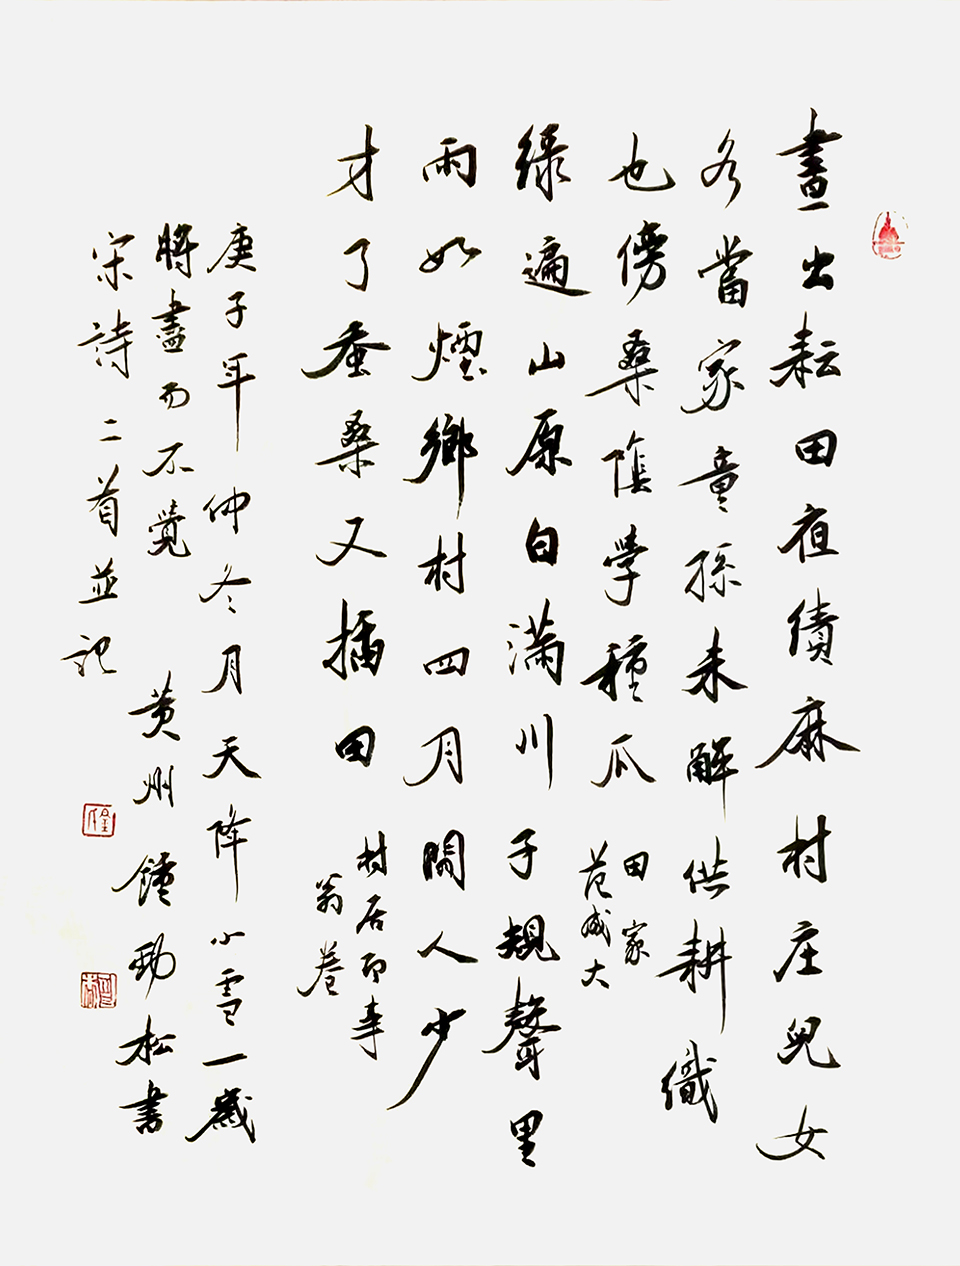 晝出耘田夜績麻村庄兒女
各當家童孫未解供耕織
也傍桑陰學種瓜
田家
范成大
綠遍山原白滿川子規聲里
雨如煙鄉村四月閒人少
才了蚕桑又插田
村居即事
翁卷
庚子年仲冬月天降小雪一歲
將盡而不覺
宋詩二首並記
黄州鍾勁松書